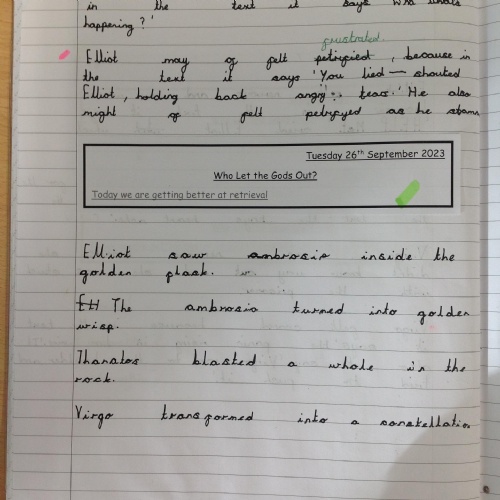 in the text it says 'who whats
happening?'
frustrated
Elliot may of felt petrified, because in
the text it says 'You lied — shouted
Elliot, holding back angry tears.' He also
might of felt petryfyed as he
Tuesday 26th September 2023
Who Let the Gods Out?
Today we are getting better at retrieval
Elliot saw ambrosia inside the
golden flask.
The ambrosia turned into golden
wisp.
Thanatos blasted a whole in the
rock.
Virgo transformed into a constellation